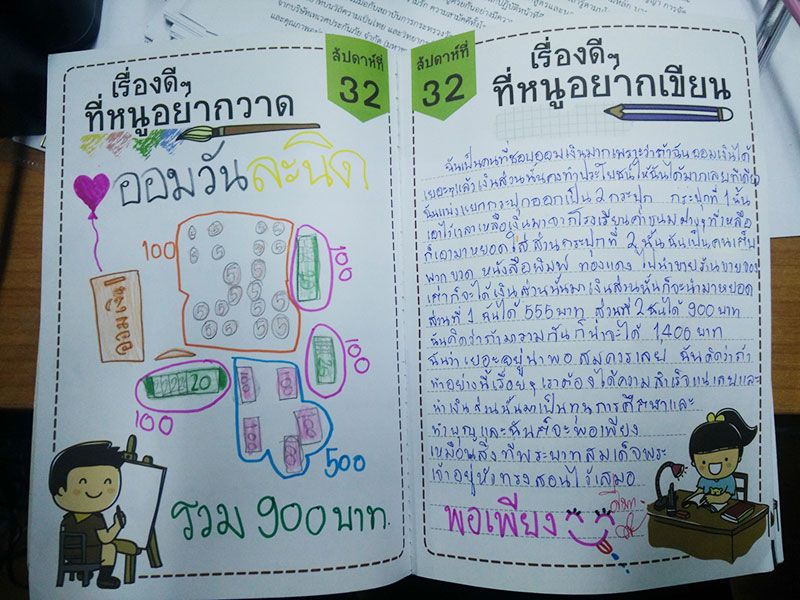 สัปดาห์ที่
32
เรื่องดีๆ
ที่หนูอยากวาด
ออมวันละนิด
100
100
รวมเงิน
100
20
100
500
รวม 900 บาท.
สัปดาห์ที่
32
เรื่องดีๆ
ที่หนูอยากเขียน
ฉันเป็นคนที่ชอบออมเงินมากเพราะว่าถ้าฉันออมเงินได้
เยอะๆแล้วเงินส่วนนั้นคงทำประโยชน์ให้ฉันได้มากเลยทีเดียว
ฉันแบ่งแยกกระปุกออกเป็น 2 กระปุก กระปุกที่ 1 นั้น
เอาไว้เวลาเหลือเงินมาจากโรงเรียนค่าขนมต่างๆที่เหลือ
ก็เอามาหยอดใส่ส่วนกระปุกที่ 2 นั้นฉันเป็นคนเก็บ
พวกขวด หนังสือพิมพ์ ทองแดง ไปนำขายร้านขายของ
เก่าก็จะได้เงินส่วนนั้นมาเงินส่วนนั้นก็จะนำมาหยอด
ส่วนที่ 1 ฉันได้ 555 บาท ส่วนที่ 2 ฉันได้ 900 บาท
ฉันคิดว่าถ้ามารวมกันก็น่าจะได้ 1,400 บาท
ฉันว่าเยอะอยู่น่าพอสมควรเลย ฉันคิดว่าถ้า
ทำอย่างนี้เรื่อยๆเราต้องได้ความสำเร็จแน่เลยและ
นำเงินส่วนนั้นมาเป็นทุนการศึกษาและ
ทำบุญและฉันก็จะพอเพียง
เหมือนสิ่งที่พระบาทสมเด็จพระ
เจ้าอยู่หัวทรงสอนไว้เสมอ
พอเพียง